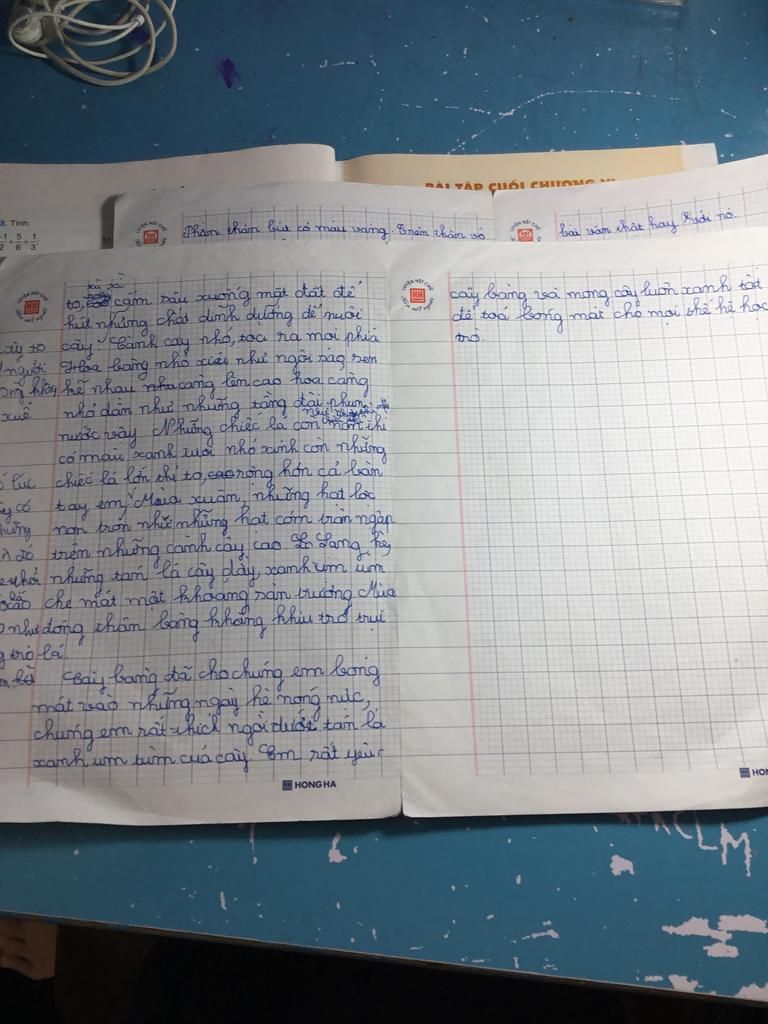 BÀI TẬP CUỐI CHƯƠNG VI
8. Tính:
Phần thân bút có màu vàng. Trên thân có
bài văn thật hay rưới nó.
LUYỆN NÉT CHỮ
xù xì
to, cắm sâu xuống mặt đất để
hút những chất dinh dưỡng để nuôi
cây. Cành cây nhỏ, toả ra mọi phía
Hoa bàng nhỏ xíu như ngôi sao, sen
kẽ nhau như càng lên cao hoa càng
nhỏ dần như những tầng đài phun
nước vậy. Những chiếc lá còn non thì
có màu xanh tươi nhỏ xinh còn những
chiếc lá lớn thì to, rộng hơn cả bàn
tay em. Mùa xuân, những hạt lộc
non tròn như những hạt cốm tràn ngập
trên những cành cây cao. Sang hè,
những tán lá cây dày, xanh um ùm
che mát một khoảng sân trường. Mùa
đông thân bàng khẳng khiu trơ trụi
lá.
Cây bàng đã cho chúng em bóng
mát vào những ngày hè nóng nực,
chúng em rất thích ngồi dưới tán lá
xanh um tùm của cây. Em rất yêu
HONG HA
LUYỆN NÉT CHỮ
cây bàng và mong cây luôn xanh tốt
để toả bóng mát cho mọi thế hệ học
trò.
HON